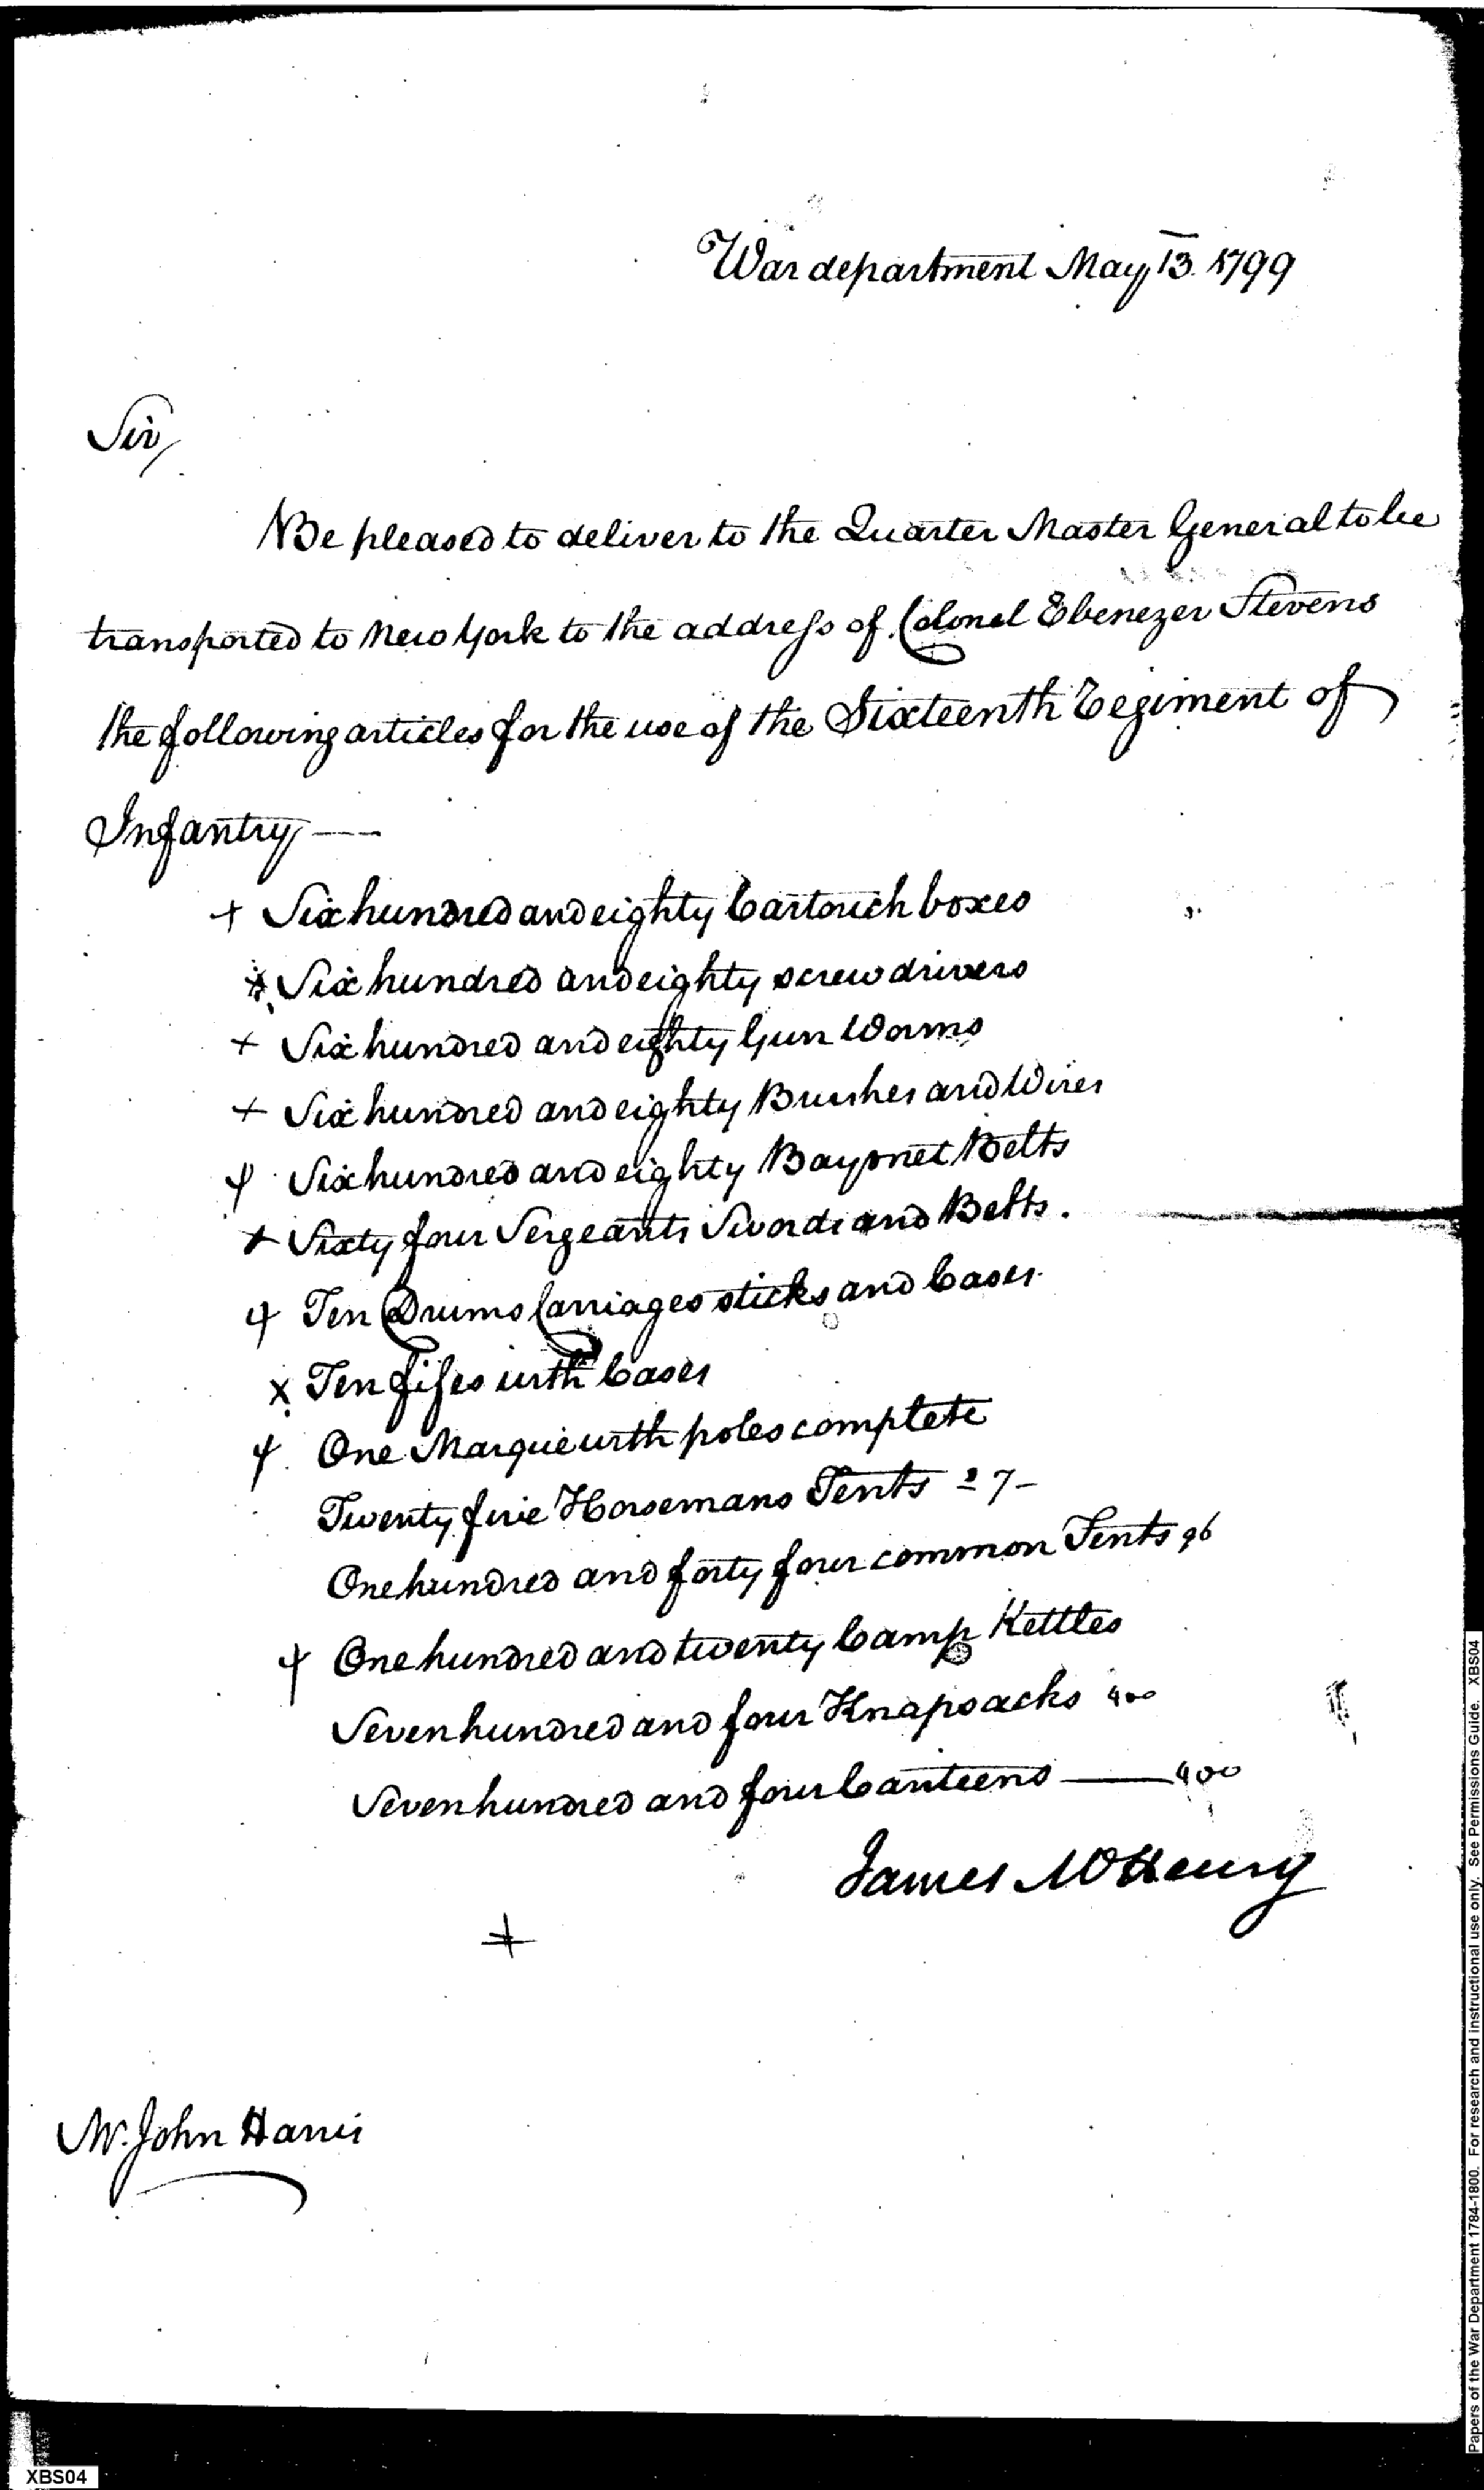 War department May 13. 1799
Sir,
Be pleased to deliver to the Quarter Master General to be
transported to New York to the address of Colonel Ebenezer Stevens
the following articles for the use of the Sixteenth Regiment of
Infantry —
+ Six hundred and eighty Cartouch boxes
+ Six hundred and eighty screw drivers
+ Six hundred and eighty Gun Worms
+ Six hundred and eighty Brushes and Wires
+ Six hundred and eighty Bayonet Belts
+ Sixty four Sergeants Swords and Belts.
+ Ten Drums Carriages sticks and Cases
x Ten fifes with Cases
+ One Marquie with poles complete
Twenty five Horsemans Tents 27-
One hundred and forty four common Tents 96
+ One hundred and twenty Camp Kettles
Seven hundred and four Knapsacks 400
Seven hundred and four Canteens — 400
James McHenry
+
Mr. John Harris
XBS04
Papers of the War Department 1784-1800. For research and instructional use only. See Permissions Guide. XBS04